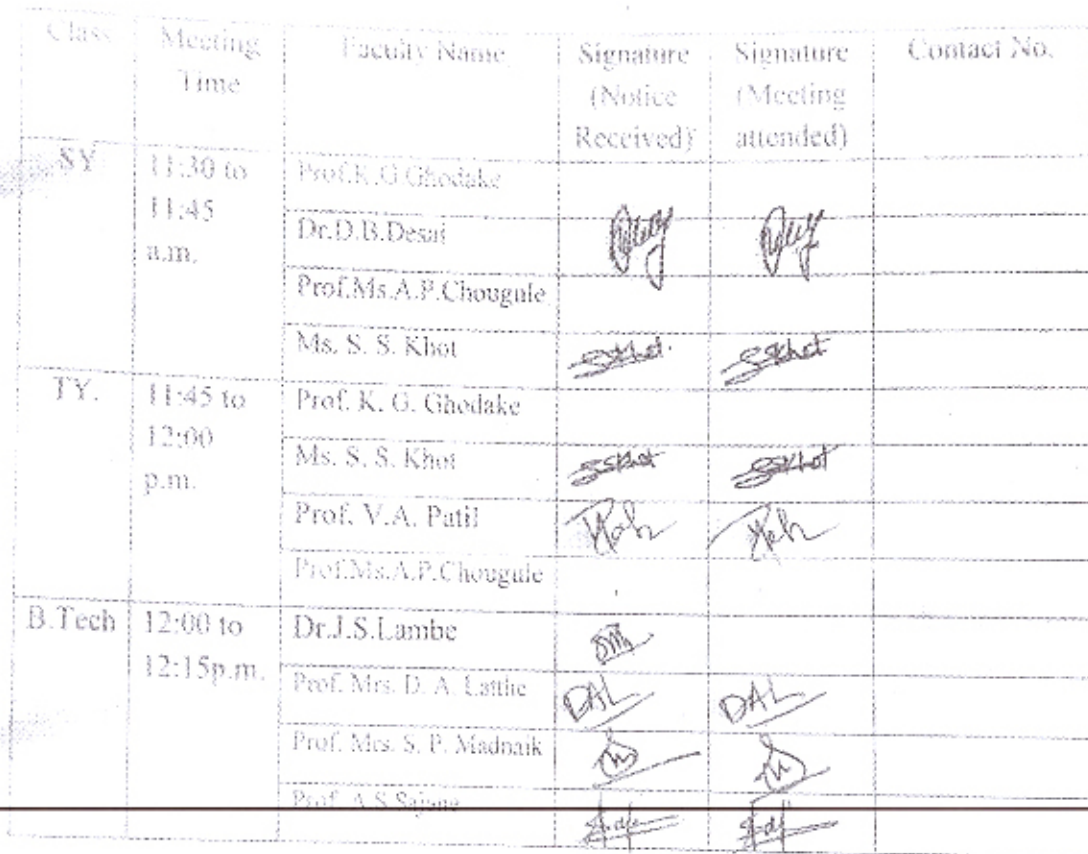 Class Meeting Time Faculty Name Signature (Notice Received) Signature (Meeting attended) Contact No.
SY 11:30 to 11:45 a.m. Prof.K.G Ghodake
Dr.D.B.Desai
Prof.Ms.A.P.Chougule
Ms. S. S. Khot SSKhot. SSKhot
TY. 11:45 to 12:00 p.m. Prof. K. G. Ghodake
Ms. S. S. Khot SSKhot SSKhot
Prof. V.A. Patil
Prof.Ms.A.P.Chougule
B.Tech 12:00 to 12:15p.m. Dr.J.S.Lambe
Prof. Mrs. D. A. Latthe DAL DAL
Prof. Mrs. S. P. Madnaik
Prof. A.S.Sajane